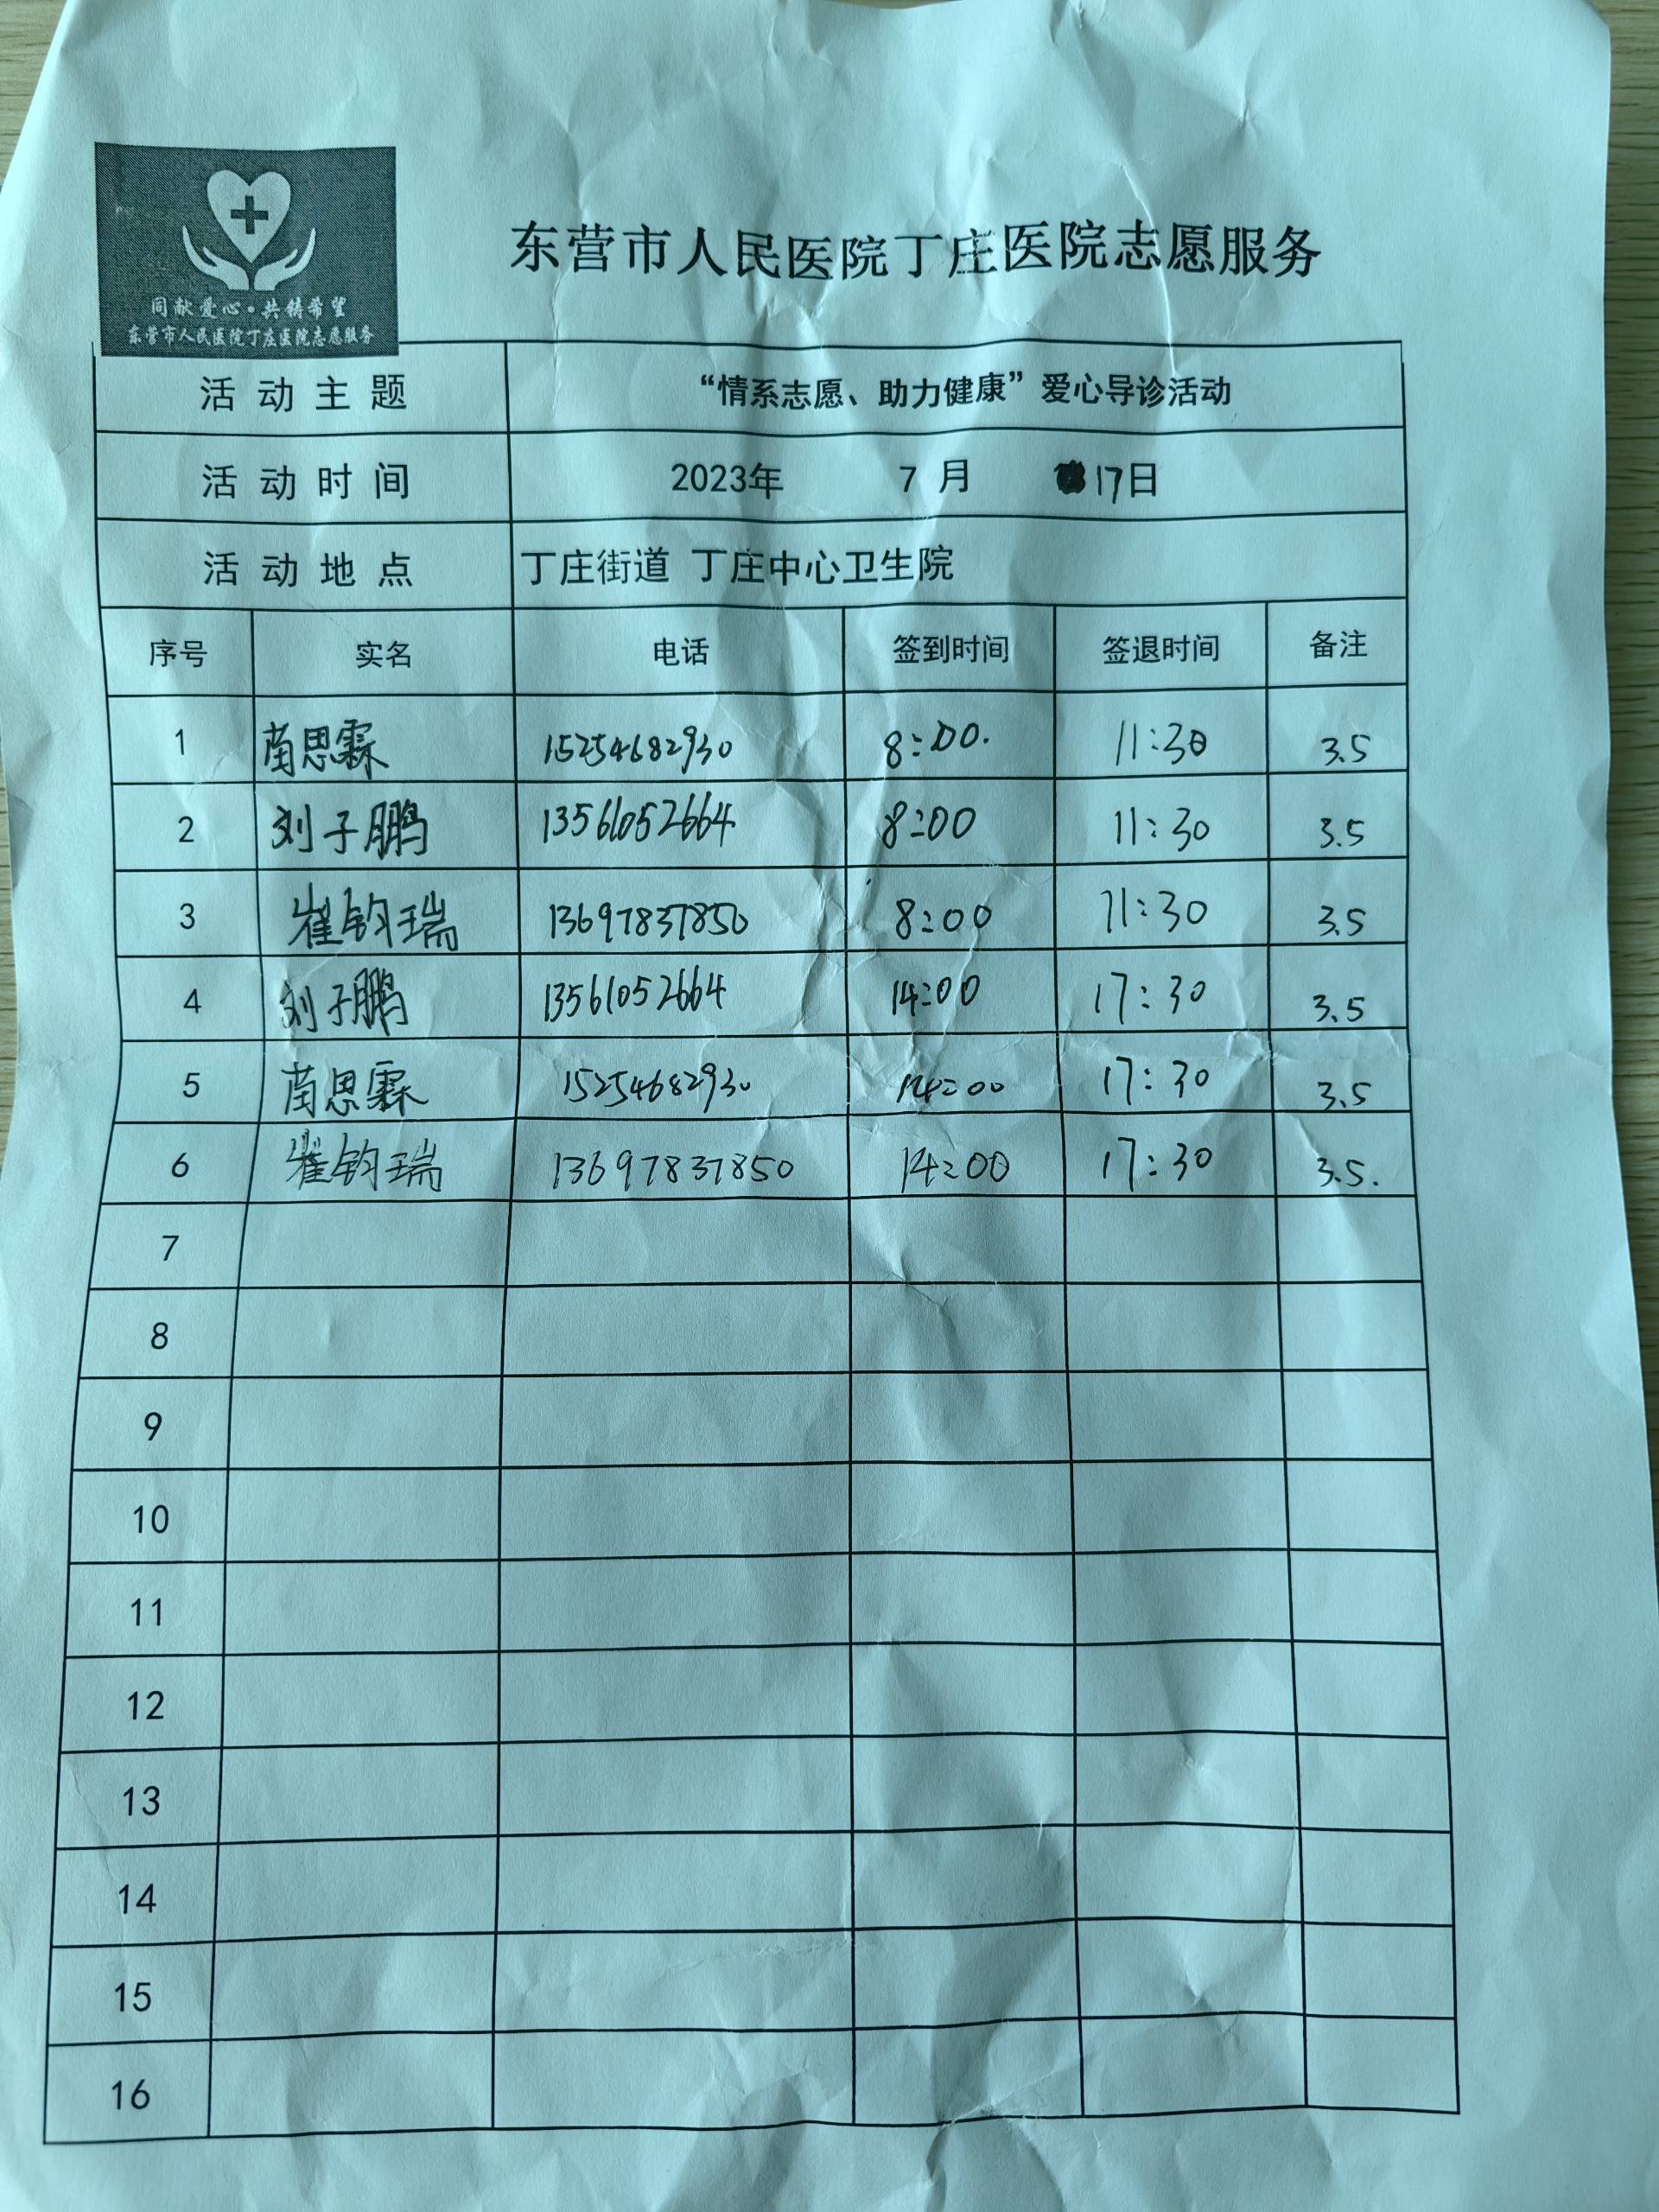 同献爱心·共铸希望
东营市人民医院丁庄医院志愿服务
东营市人民医院丁庄医院志愿服务
活动主题 “情系志愿、助力健康”爱心导诊活动
活动时间 2023年 7月 17日
活动地点 丁庄街道 丁庄中心卫生院
序号 实名 电话 签到时间 签退时间 备注
1 苘思霖 15254682930 8:00. 11:30 3.5
2 刘子鹏 13561052664 8:00 11:30 3.5
3 崔钧瑞 13697837850 8:00 11:30 3.5
4 刘子鹏 13561052664 14:00 17:30 3.5
5 苘思霖 15254682930 14:00 17:30 3.5
6 崔钧瑞 13697837850 14:00 17:30 3.5.
7
8
9
10
11
12
13
14
15
16